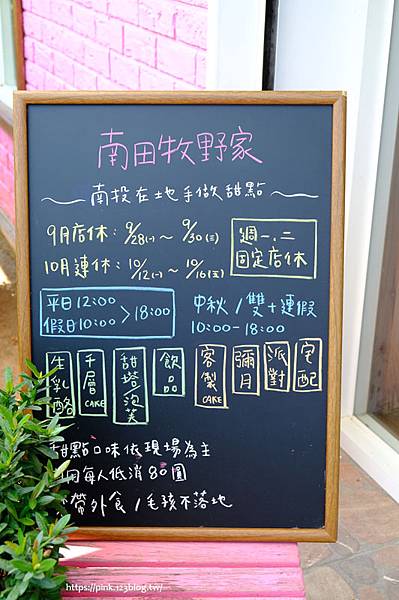 南田牧野家
南投在地手做甜點
9月店休：9/28(一)～9/30(三)
10月連休：10/12(一)～10/16(五)
週一、二
固定店休
平日12:00
假日10:00 > 18:00
中秋/雙+連假
10:00-18:00
生乳酪
千層CAKE
甜塔泡芙
飲品
客製CAKE
彌月
派對
宅配
甜點口味依現場為主
用每人低消80圓
帶外食/毛孩不落地
https://pink.123blog.tw/